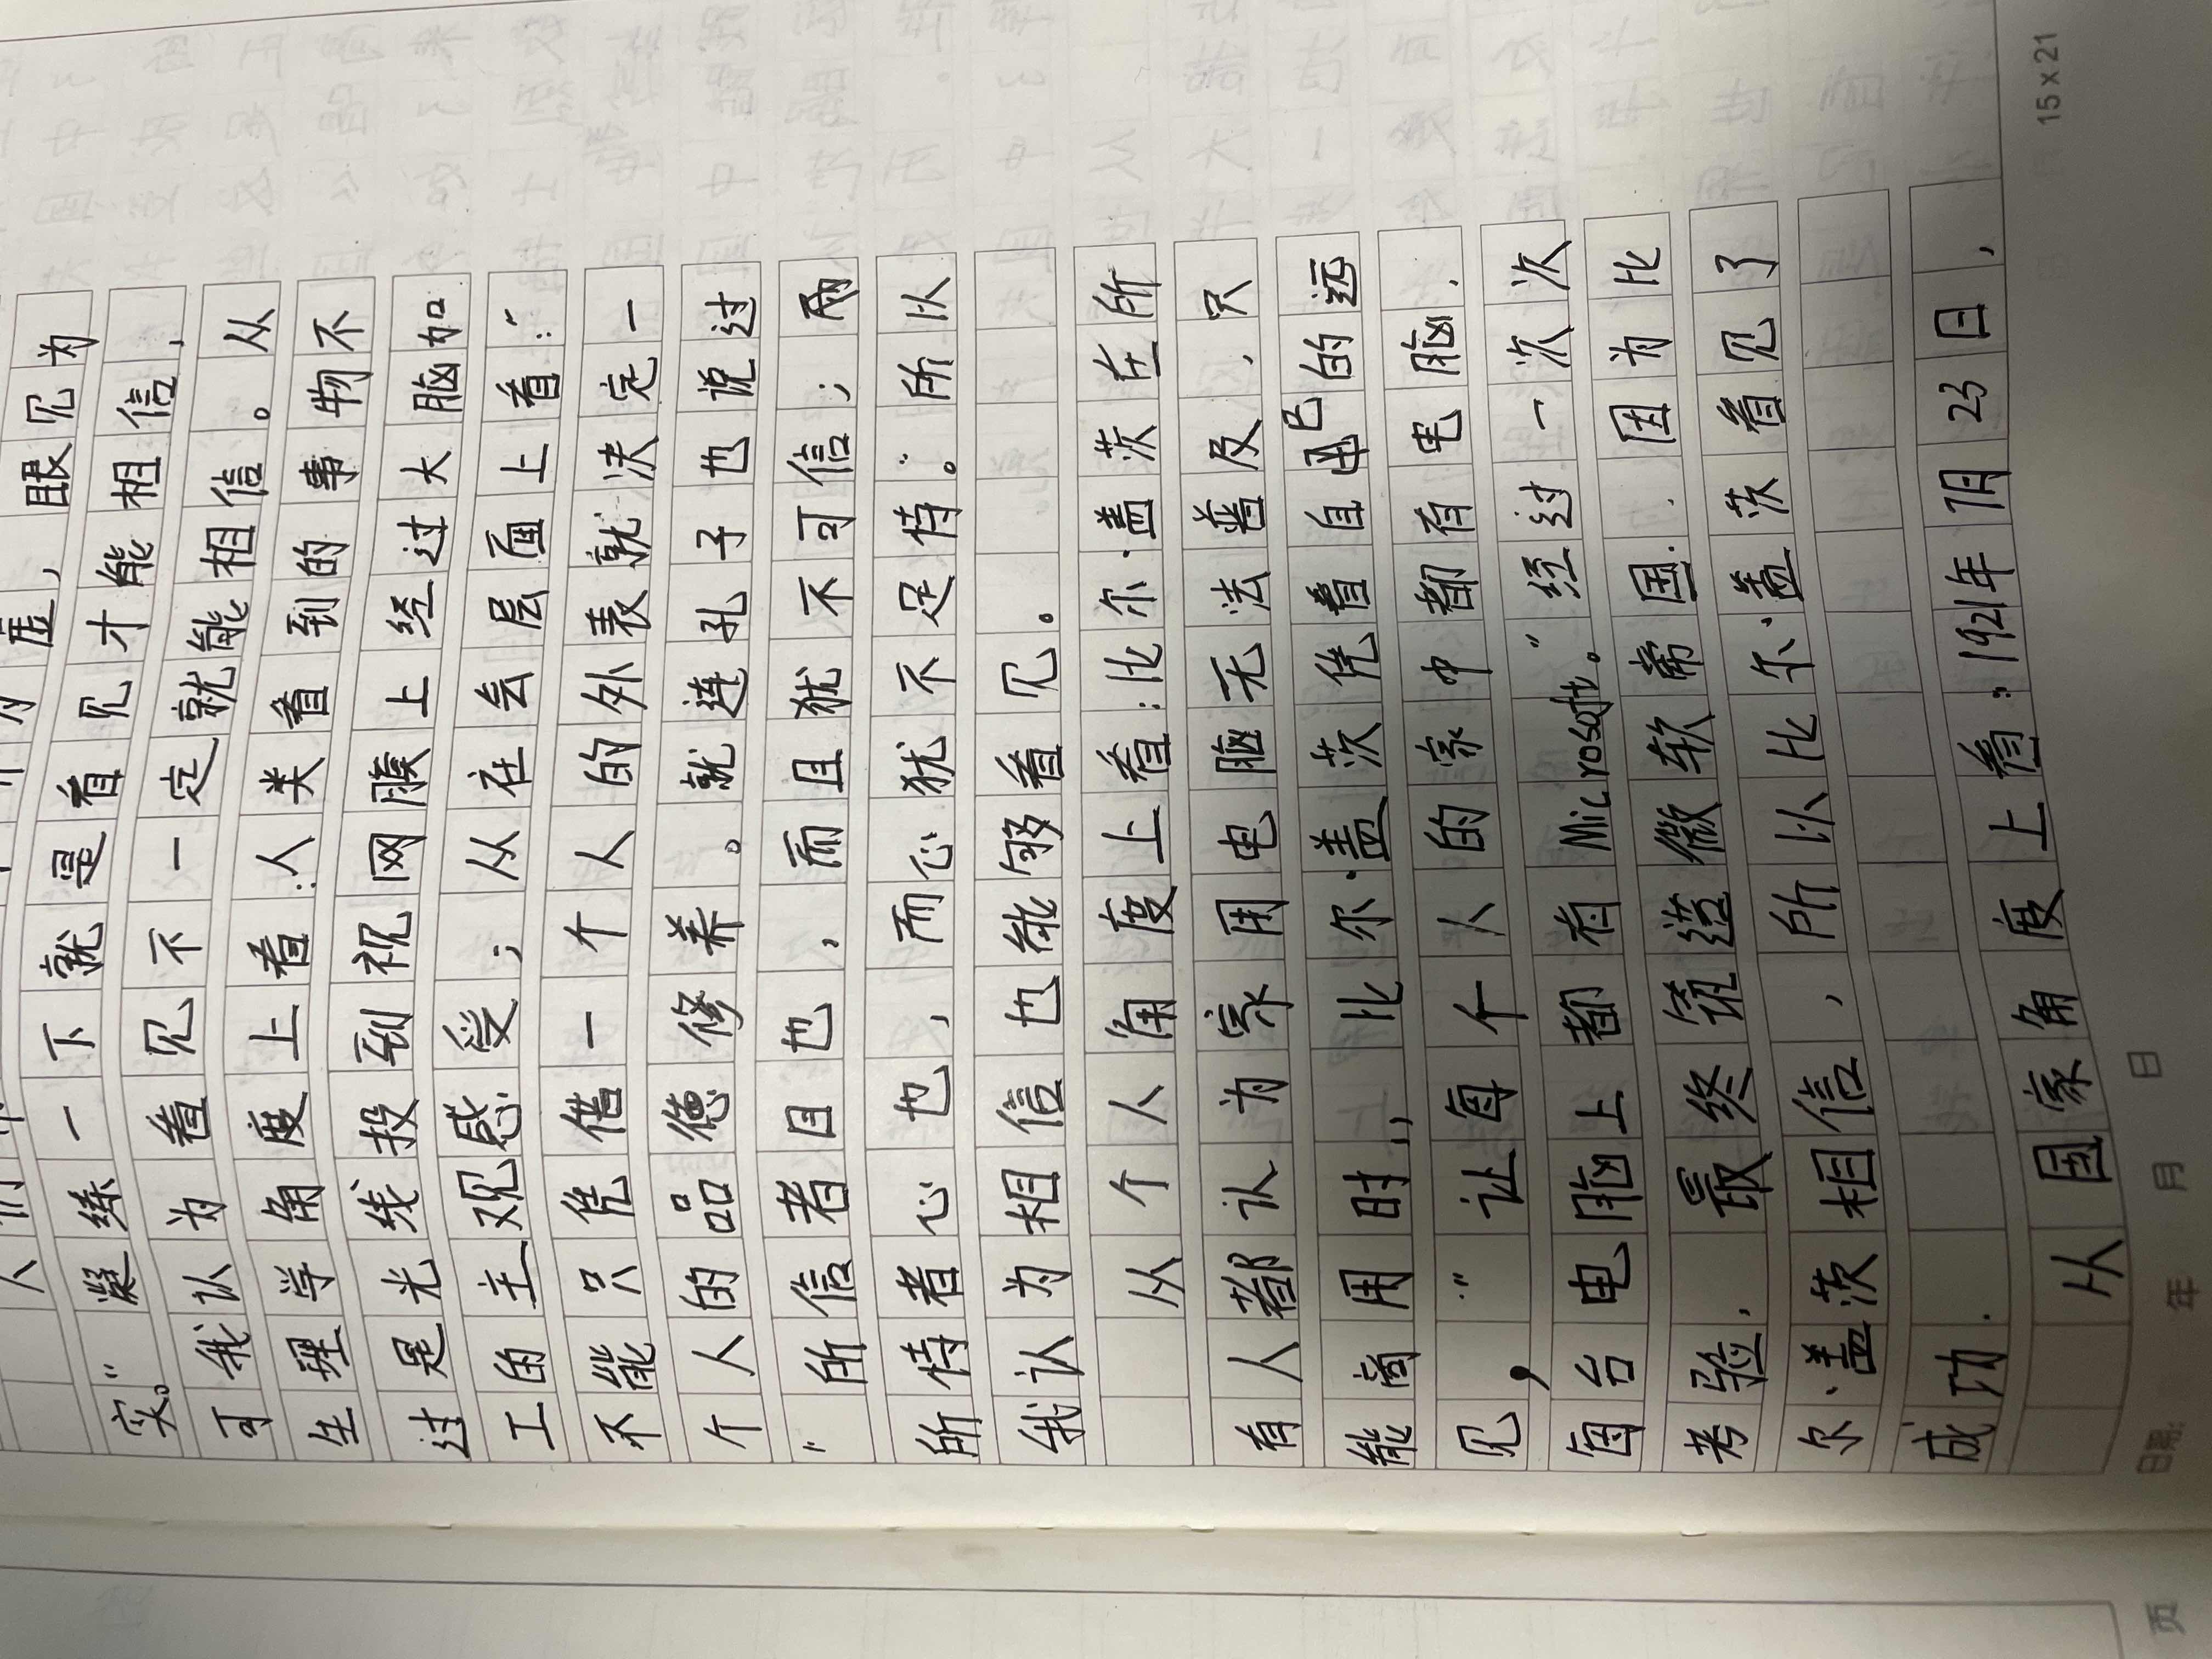 眼见为
实。”凝练一下就是看见才能相信，
可我认为看见不一定就能相信。从
生理学角度上看：人类看到的事物不
过是光线投到视网膜上经过大脑加
工的主观感受；从在会层面上看：“
不能只凭借一个人的外表就决定一
个人的品德修养。就连孔子也说过
“所信者目也，而且犹不可信；而
所恃者心也，而心犹不足恃。”所以
我认为相信也能够看见。
从个人角度上看：比尔·盖茨在所
有人都认为家用电脑无法普及，只
能商用时，比尔·盖茨凭着自己的远
见，“让每个人的家中都有电脑，
每台电脑上都有Microsoft。”经过一次次
考验，最终筑造微软帝国．因为比
尔·盖茨相信，所以比尔·盖茨看见了
成功．
从国家角度上看：1921年7月23日，
日期: 年 月 日
15×21
页